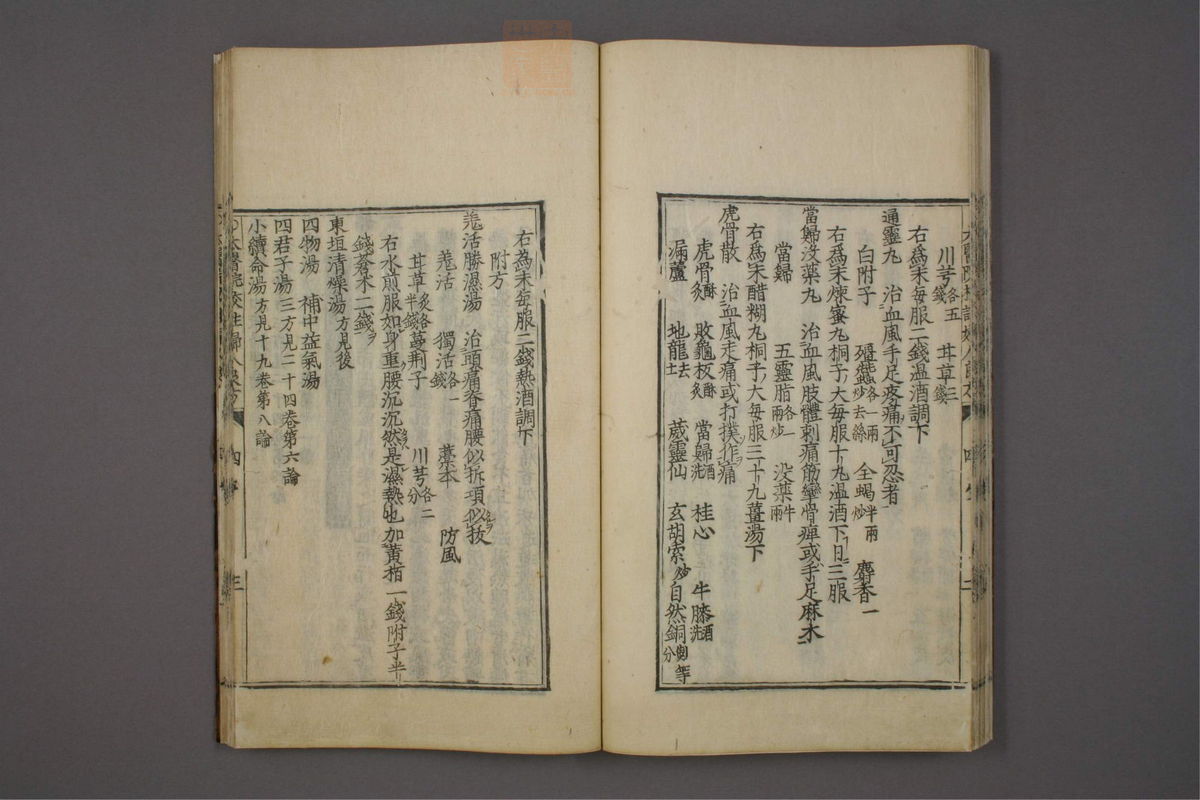 川芎各五錢 甘草三錢
右爲末每服一錢温酒調下
通靈丸 治血風手足疼痛不可忍者
白附子 殭蠶各一兩炒去絲 全蝎半兩炒 麝香一
右爲末煉蜜丸桐子大每服十丸温酒下日三服
當歸没藥丸 治血風肢體刺痛筋攣骨痺或手足麻木
當歸 五靈脂各一兩炒 没藥半兩
右爲末醋糊丸桐子大每服三十丸薑湯下
虎骨散 治血風走痛或打撲作痛
虎骨酥炙 敗龜板酥炙 當歸酒洗 桂心 牛膝酒洗
漏蘆 地龍去土 葳靈仙 玄胡索炒 自然銅等分
右為末每服二錢熱酒調下
附方
羌活勝濕湯 治頭痛脊痛腰似折項似拔
羌活 獨活各一錢 藁本 防風
甘草炙各半錢 蔓荆子 川芎各二分
右水煎服如身重腰沉沉然是濕熱也加黄栢一錢附子半
錢蒼术二錢
東垣清燥湯方見後
四物湯 補中益氣湯
四君子湯三方見二十四卷第六論
小續命湯方見十九卷第八論
四 三